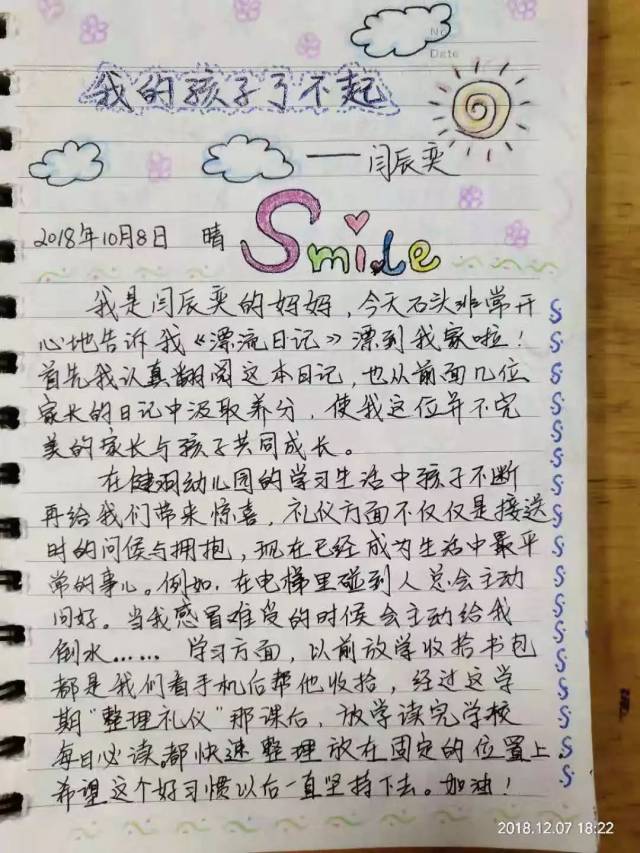 No
Date
我的孩子了不起
——闫辰奕
2018年10月8日 晴 Smile
我是闫辰奕的妈妈，今天石头非常开
心地告诉我《漂流日记》漂到我家啦！
首先我认真翻阅这本日记，也从前面几位
家长的日记中汲取养分，使我这位并不完
美的家长与孩子共同成长。
在健羽幼儿园的学习生活中孩子不断
再给我们带来惊喜，礼仪方面不仅仅是接送
时的问候与拥抱，现在已经成为生活中最平
常的事儿。例如，在电梯里碰到人总会主动
问好。当我感冒难受的时候会主动给我
倒水…… 学习方面，以前放学收拾书包
都是我们看手机后帮他收拾，经过这学
期“整理礼仪”那课后，放学读完学校
每日必读，都快速整理放在固定的位置上。
希望这个好习惯以后一直坚持下去。加油！
2018.12.07 18:22